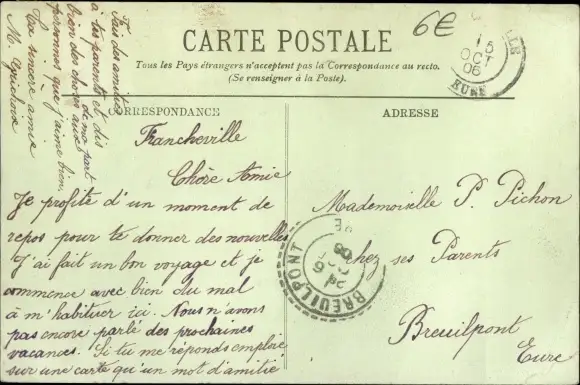 6€
CARTE POSTALE
Tous les Pays étrangers n'acceptent pas la Correspondance au recto.
(Se renseigner à la Poste).
CORRESPONDANCE
ADRESSE
Francheville
Chère Amie
Je profite d'un moment de
repos pour te donner des nouvelles
J'ai fait un bon voyage et je
commence avec bien du mal
à m'habituer ici. Nous n'avons
pas encore parlé des prochaines
vacances. Si tu me réponds emploie
sur une carte qu'un mot d'amitié
Fais des amitiés
à tes parents et dis
bien des choses aux
de ma part
personnes que j'aime bien,
Ta sincère amie
M.
Mademoiselle P. Pichon
chez ses Parents
Breuilpont
Eure
15
OCT
06
EURE
BREUILPONT